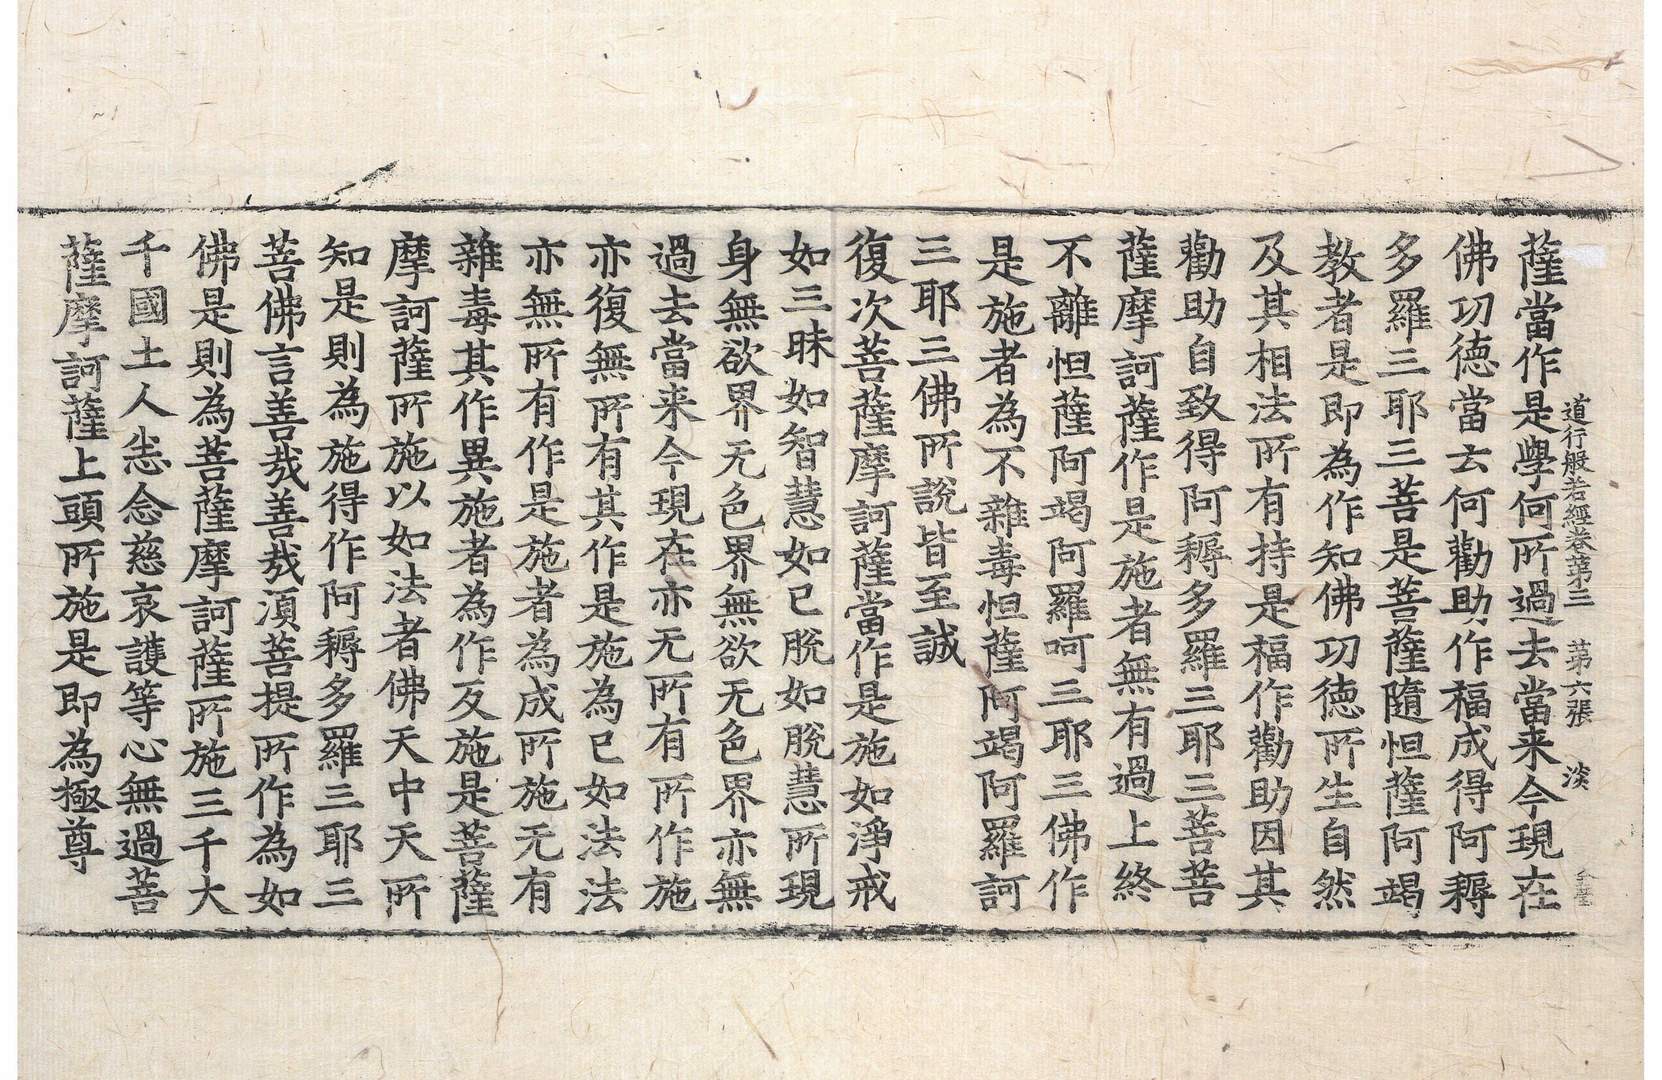 道行般若經卷第三　第六張　淡
薩當作是學何所過去當来今現在
佛功德當云何勸助作福成得阿耨
多羅三耶三菩是菩薩隨怛薩阿竭
教者是即為作知佛功德所生自然
及其相法所有持是福作勸助因其
勸助自致得阿耨多羅三耶三菩菩
薩摩訶薩作是施者無有過上終
不離怛薩阿竭阿羅呵三耶三佛作
是施者為不雜毒怛薩阿竭阿羅訶
三耶三佛所說皆至誠
復次菩薩摩訶薩當作是施如淨戒
如三昧如智慧如已脫如脫慧所現
身無欲界无色界無欲无色界亦無
過去當来今現在亦无所有所作施
亦復無所有其作是施為已如法法
亦無所有作是施者為成所施无有
雜毒其作異施者為作反施是菩薩
摩訶薩所施以如法者佛天中天所
知是則為施得作阿耨多羅三耶三
菩佛言善哉善哉須菩提所作為如
佛是則為菩薩摩訶薩所施三千大
千國土人悉念慈哀護等心無過菩
薩摩訶薩上頭所施是即為極尊